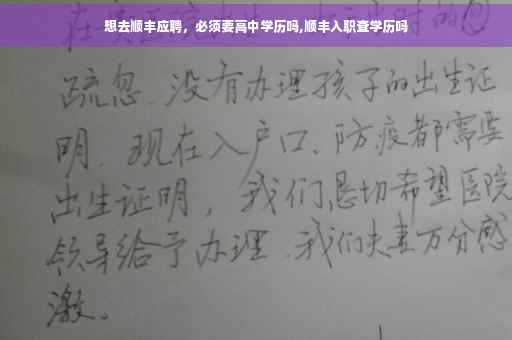 想去顺丰应聘，必须要高中学历吗,顺丰入职查学历吗
疏忽.没有办理孩子的出生证
明.现在入户口、防疫都需要
出生证明，我们恳切希望医院
领导给予办理.我们夫妻万分感
激。